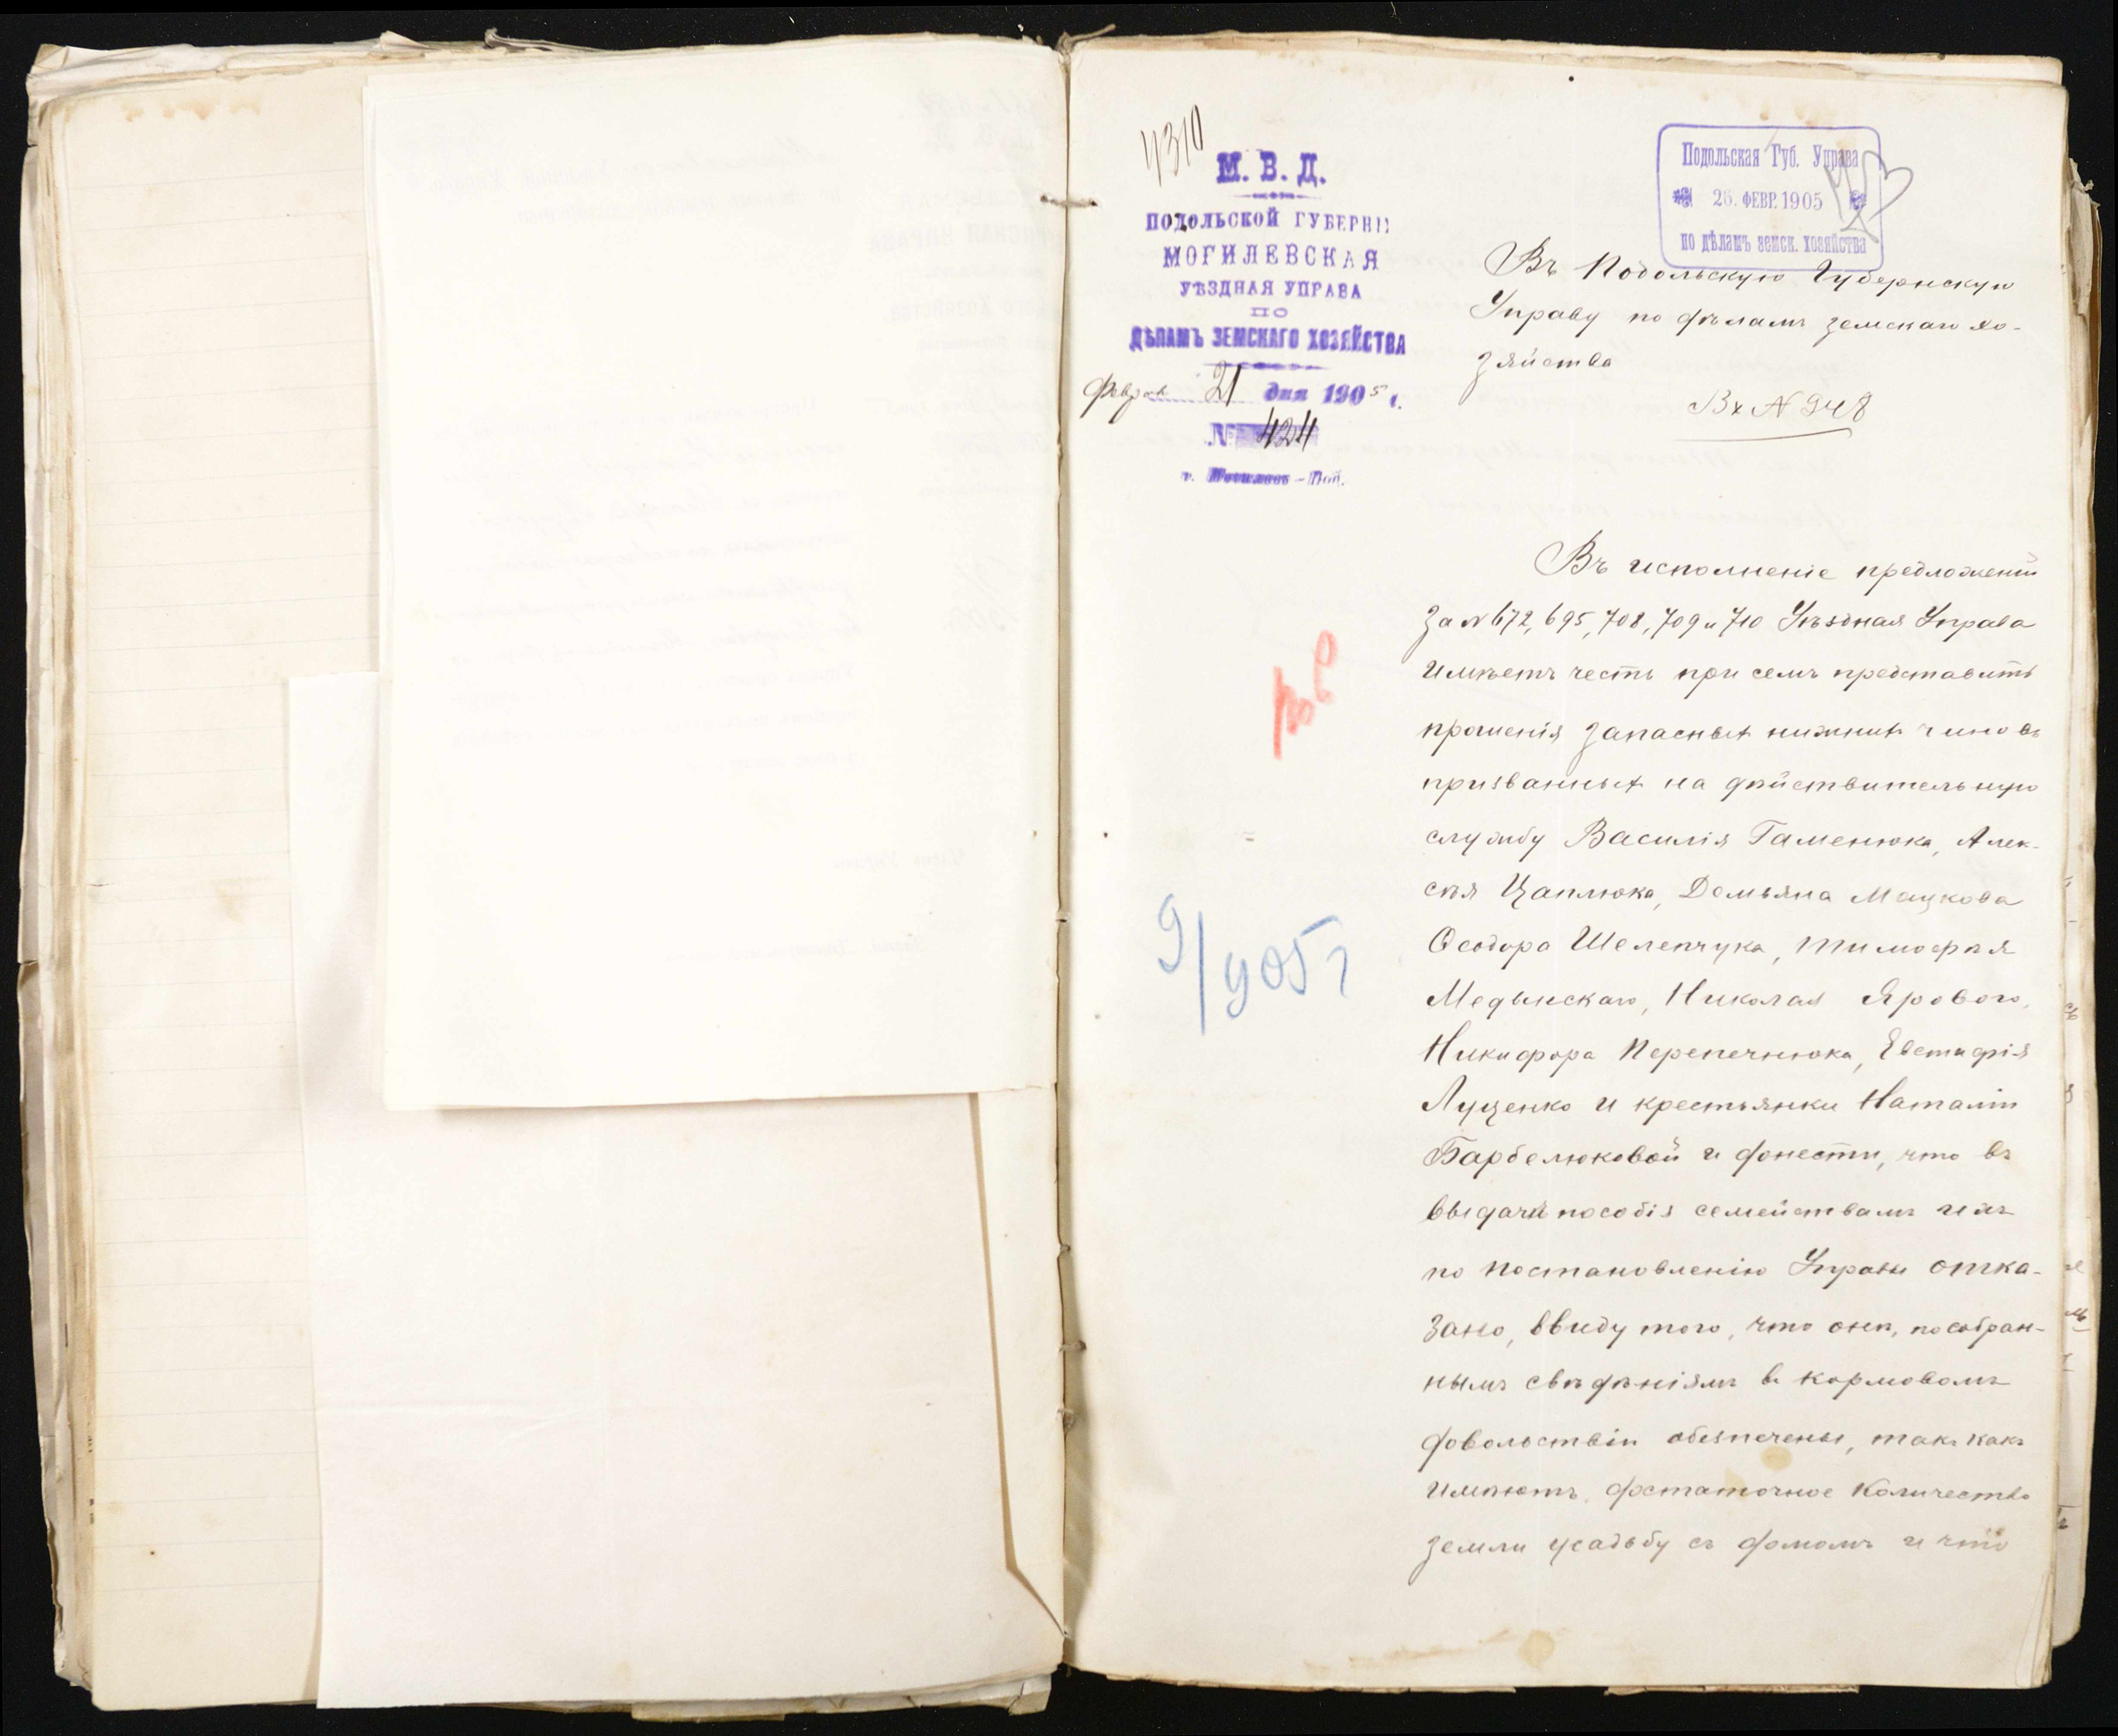 4310
М. В. Д.
ПОДОЛЬСКОЙ ГУБЕРНІИ
МОГИЛЕВСКАЯ
УѢЗДНАЯ УПРАВА
ПО
ДѢЛАМЪ ЗЕМСКАГО ХОЗЯЙСТВА
Феврал 21 дня 1905 г.
№ 424
г. Могилевъ-Под.
Подольская Губ. Управа
26. ФЕВР. 1905
по дѣламъ земск. хозяйства
Въ Подольскую Губернскую
Управу по дѣламъ земскаго хо-
зяйства
Вх № 948
Въ исполненіе предложеній
за № 672, 695, 708, 709 и 710 Уѣздная Управа
имѣетъ честь при семъ представить
прошенія запасныхъ нижнихъ чиновъ
призванныхъ на дѣйствительную
службу Василія Гаменюка, Алек-
сѣя Цаплюка, Демьяна Мацкова
Ѳеодора Шелепчука, Тимофѣя
Медынскаго, Николая Ярового,
Никифора Перепечнюка, Евстафія
Луценко и крестьянки Наталіи
Барбелюковой и донести, что въ
выдачѣ пособія семействамъ ихъ
по постановленію Управы отка-
зано, ввиду того, что онѣ, по собран-
нымъ свѣдѣніямъ въ кормовомъ
довольствіи обезпечены, такъ какъ
имѣютъ достаточное количество
земли усадьбу съ домомъ и что
9/905 г